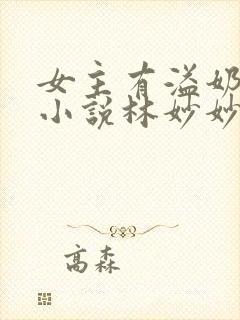 女主有溢奶
小说林妙妙
高森